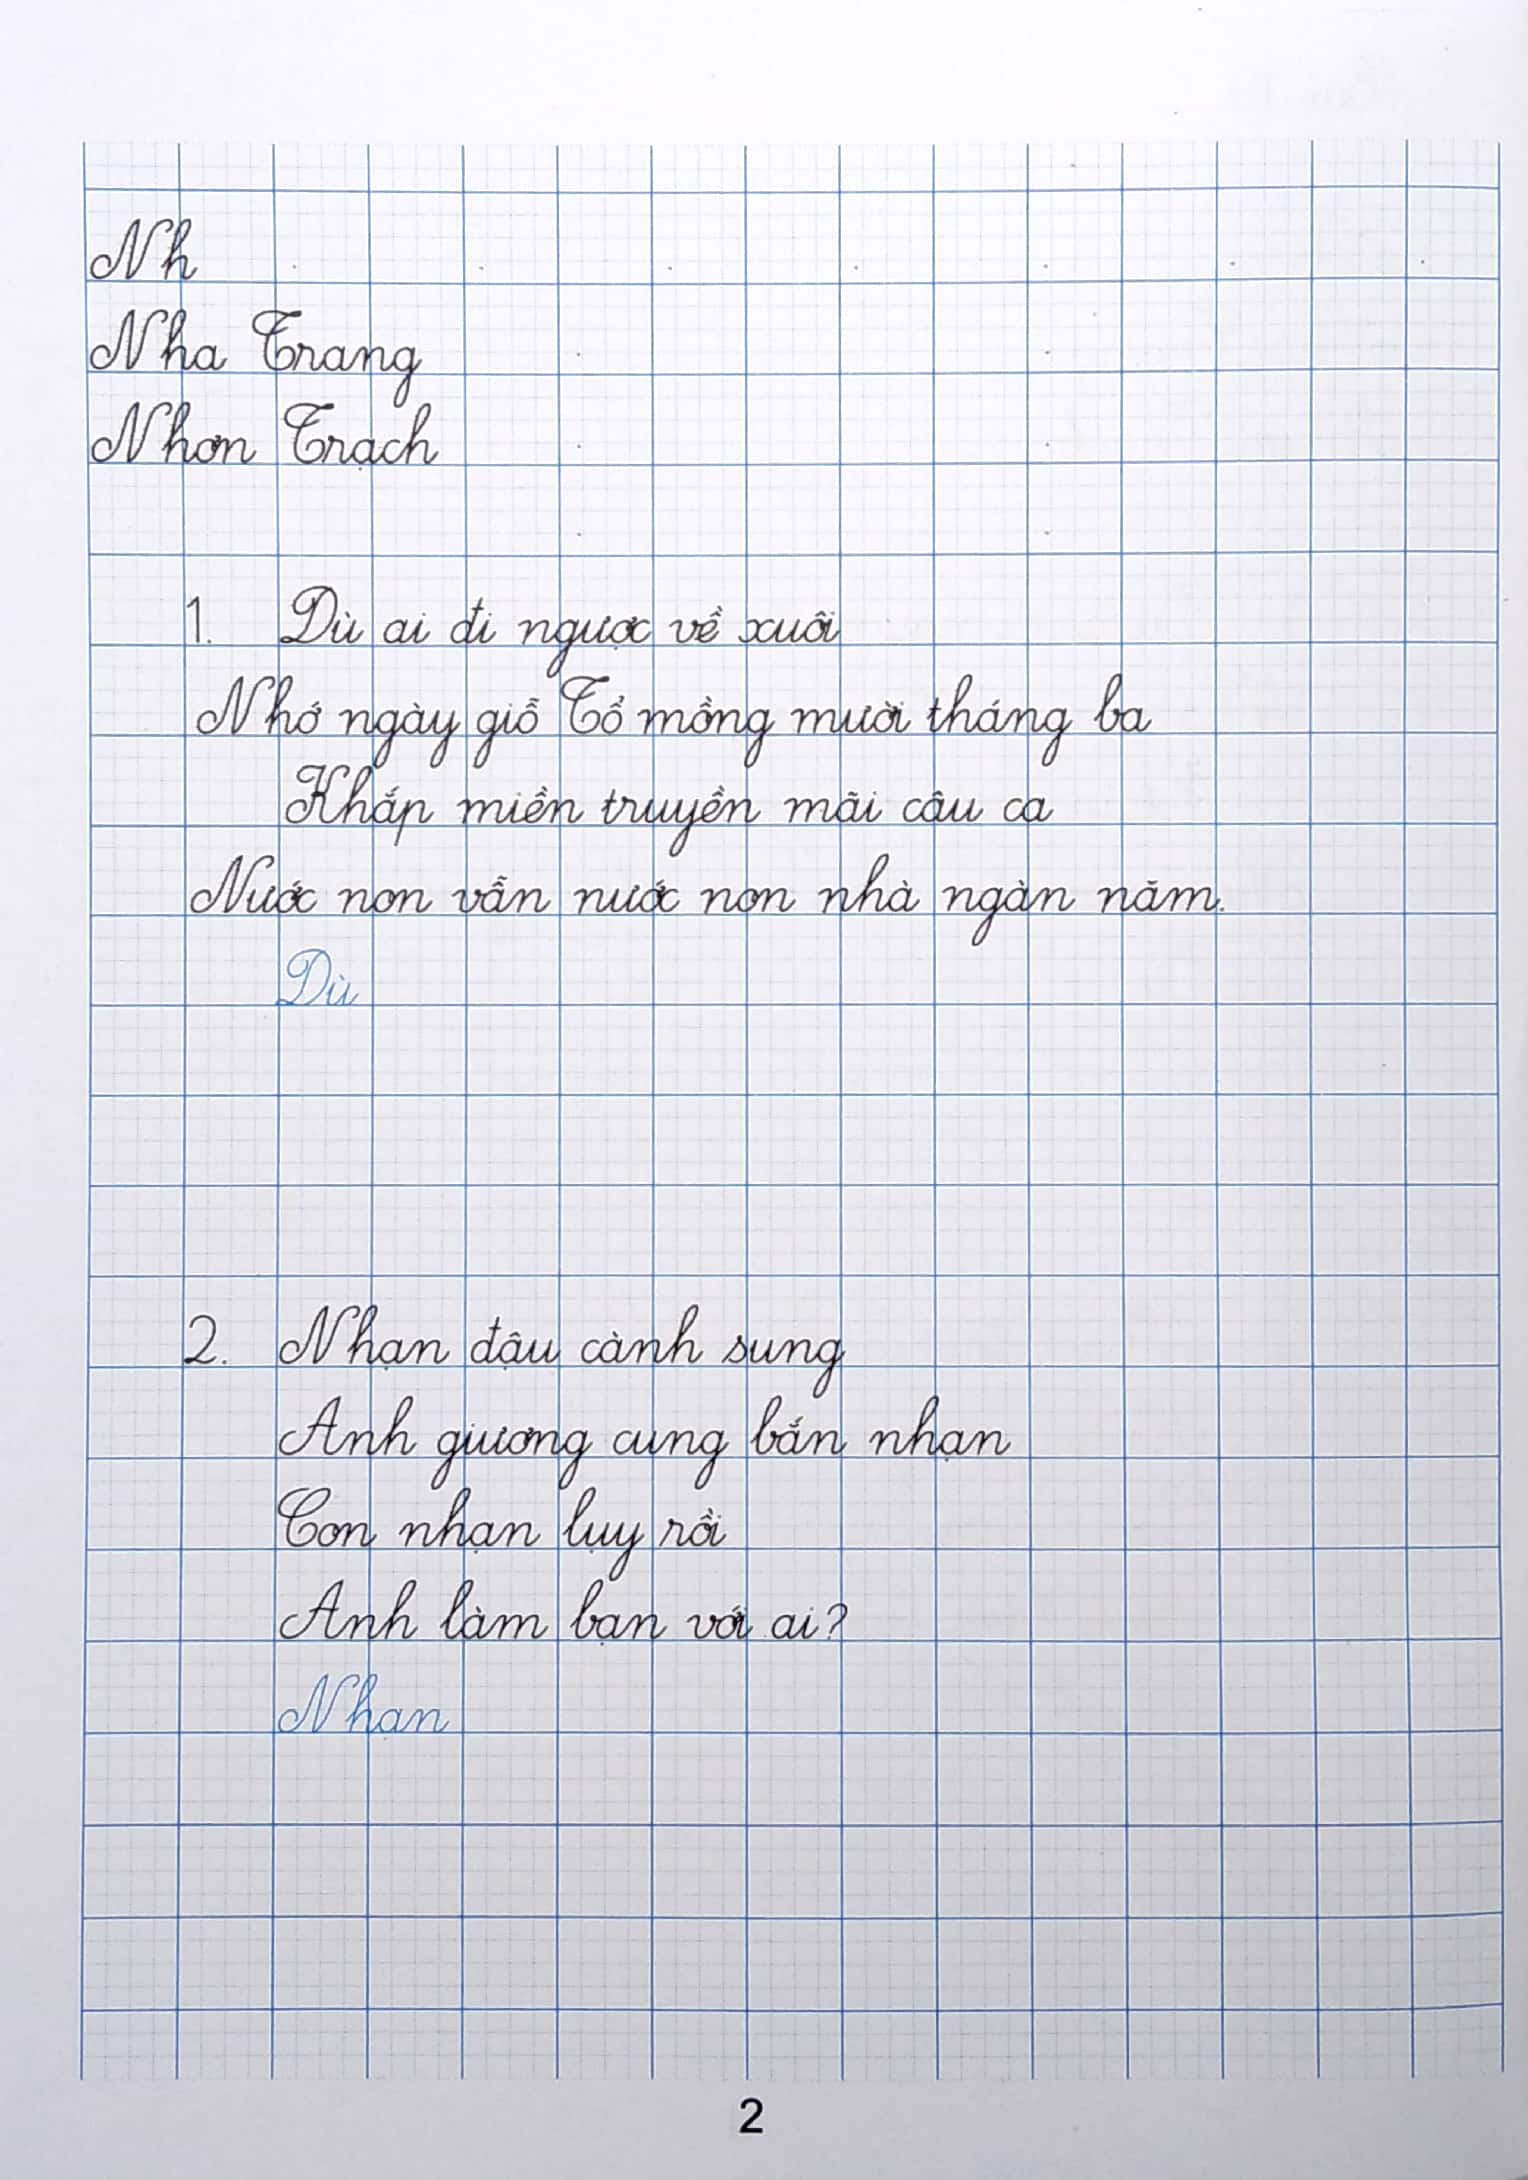 Nh
Nha Trang
Nhơn Trạch
1. Dù ai đi ngược về xuôi
Nhớ ngày giỗ Tổ mồng mười tháng ba
Khắp miền truyền mãi câu ca
Nước non vẫn nước non nhà ngàn năm.
Dù
2. Nhạn đậu cành sung
Anh giương cung bắn nhạn
Con nhạn lụy rồi
Anh làm bạn với ai?
Nhạn
2